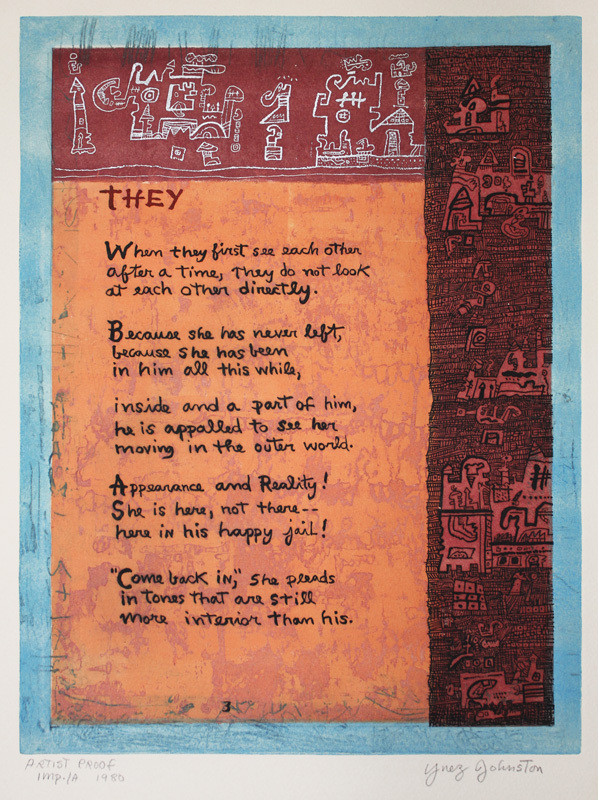 THEY
When they first see each other
after a time, they do not look
at each other directly.
Because she has never left,
because she has been
in him all this while,
inside and a part of him,
he is appalled to see her
moving in the outer world.
Appearance and Reality!
She is here, not there--
here in his happy jail!
"Come back in," she pleads
in tones that are still
more interior than his.
3
ARTIST PROOF
imp./A 1980
Ynez Johnston